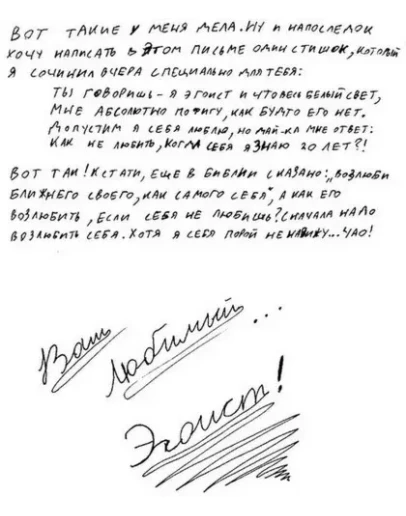 Вот такие у меня дела. Ну и напоследок
хочу написать в этом письме один стишок, который
я сочинил вчера специально для тебя:
Ты говоришь - я эгоист и что весь белый свет,
Мне абсолютно по фигу, как будто его нет.
Допустим я себя люблю, но дай-ка мне ответ:
Как не любить, когда себя я знаю 20 лет?!
Вот так! Кстати, еще в Библии сказано: „возлюби
ближнего своего, как самого себя", а как его
возлюбить, если себя не любишь? Сначала надо
возлюбить себя. Хотя я себя порой ненавижу... Чао!
Ваш
любимый...
Эгоист!